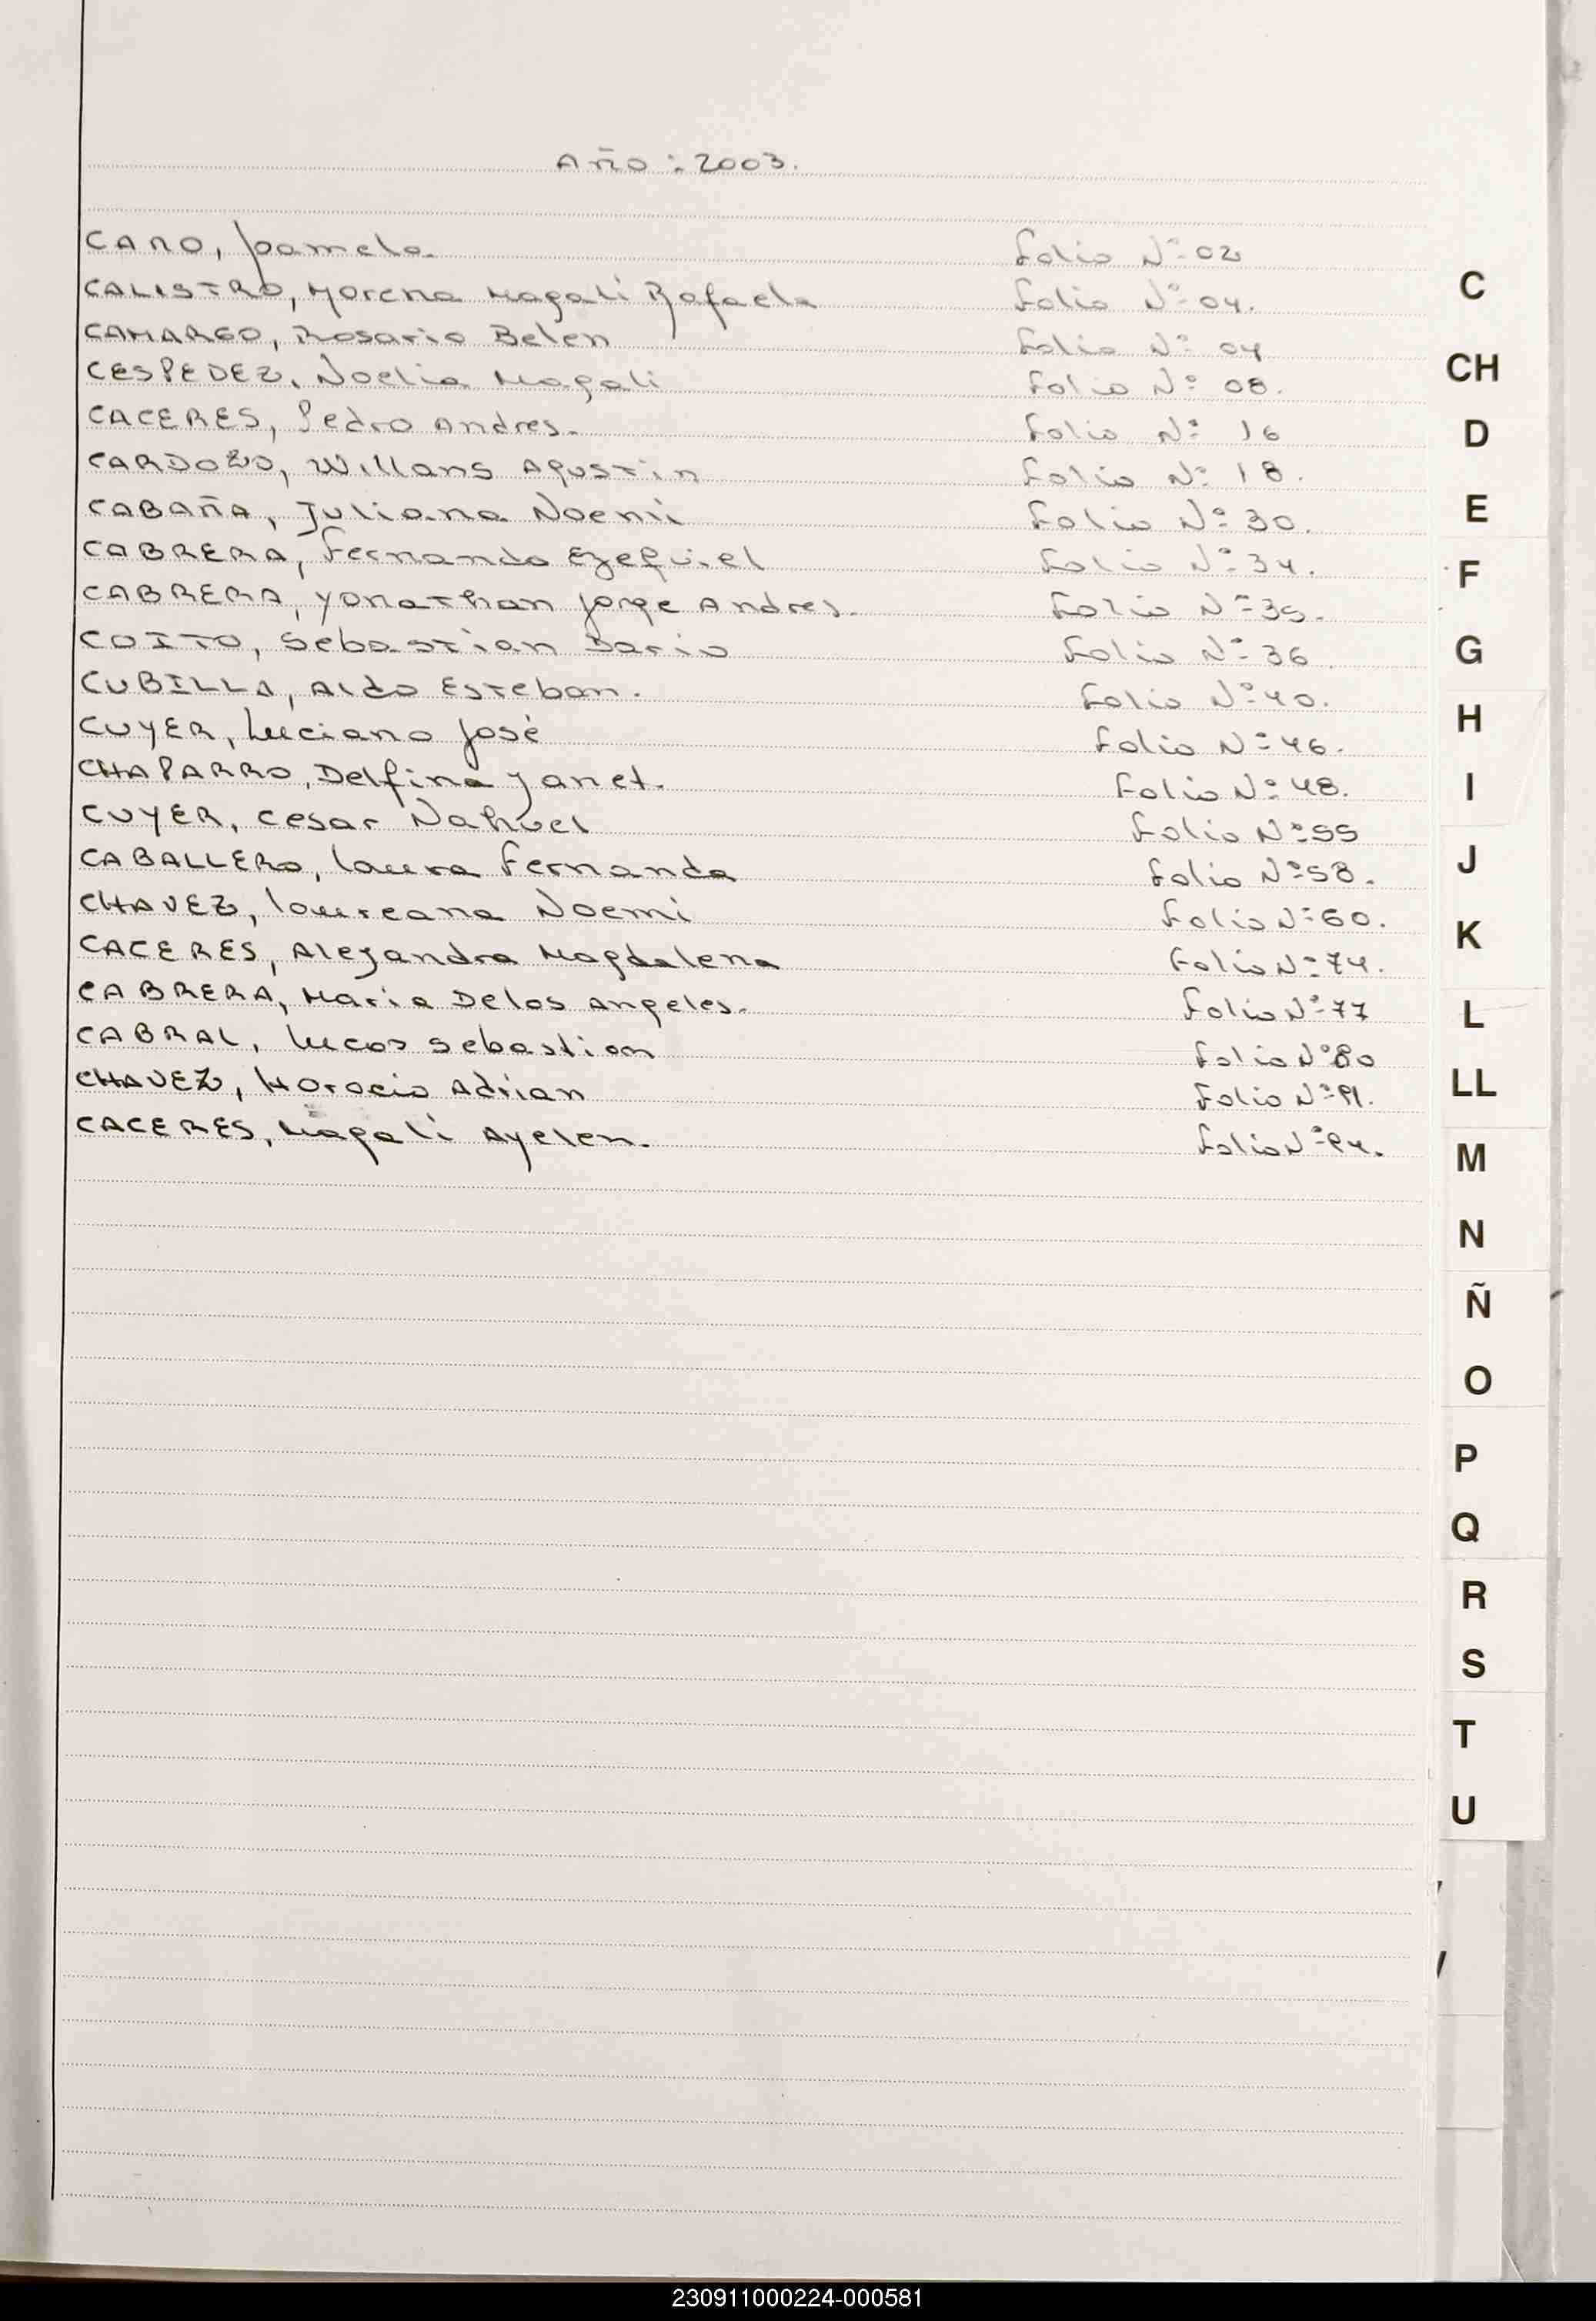 Año : 2003.
CANO, Pamela. Folio Nº 02
CALISTRO, Morena Magali Rafaela Folio Nº 04.
CAMARGO, Rosario Belen Folio Nº 04
CESPEDEZ, Noelia Magali Folio Nº 08.
CACERES, Pedro Andres. Folio Nº 16
CARDOZO, Willans Agustin Folio Nº 18.
CABAÑA, Juliana Noemi Folio Nº 30.
CABRERA, Fernando Ezequiel Folio Nº 34.
CABRERA, Yonathan Jorge Andres. Folio Nº 35.
COITO, Sebastian Dario Folio Nº 36
CUBILLA, Aldo Esteban. Folio Nº 40.
CUYER, Luciano José Folio Nº 46.
CHAPARRO, Delfina Janet. Folio Nº 48.
CUYER, Cesar Nahuel Folio Nº 55
CABALLERO, Laura Fernanda Folio Nº 58.
CHAVEZ, Laureana Noemi Folio Nº 60.
CACERES, Alejandra Magdalena Folio Nº 74.
CABRERA, Maria Delos Angeles. Folio Nº 77
CABRAL, Lucas Sebastian Folio Nº 80
CHAVEZ, Horacio Adrian Folio Nº 91.
CACERES, Magali Ayelen. Folio Nº 94.
C
CH
D
E
F
G
H
I
J
K
L
LL
M
N
Ñ
O
P
Q
R
S
T
U
230911000224-000581